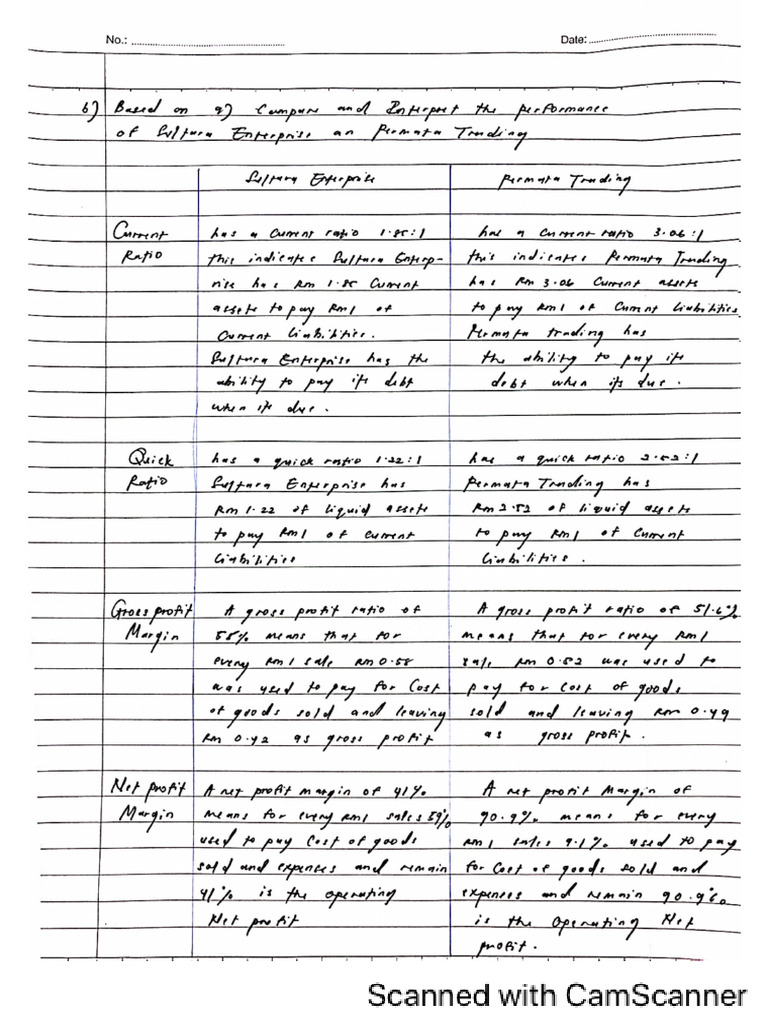 No.: Date:
b) Based on a) Compare and Interpret the performance
of Sultura Enterprise an Permata Trading
Sultura Enterprise Permata Trading
Current has a current ratio 1.85:1 has a current ratio 3.06:1
Ratio this indicates Sultura Enterp- this indicates Permata Trading
rise has Rm 1.85 Current has Rm 3.06 Current assets
assets to pay Rm1 of to pay Rm1 of Current Liabilities
Current Liabilities. Permata trading has
Sultura Enterprise has the the ability to pay its
ability to pay its debt debt when its due.
when its due.
Quick has a quick ratio 1.22:1 has a quick ratio 2.52:1
Ratio Sultura Enterprise has Permata Trading has
Rm 1.22 of liquid assets Rm 2.52 of liquid assets
to pay Rm1 of current to pay Rm1 of Current
Liabilities Liabilities.
Gross profit A gross profit ratio of A gross profit ratio of 51.6%
Margin 58% means that for means that for every Rm1
every Rm1 sale Rm 0.58 sale Rm 0.52 was used to
was used to pay for Cost pay for cost of goods
of goods sold and leaving sold and leaving Rm 0.49
Rm 0.42 as gross profit as gross profit.
Net profit A net profit margin of 41% A net profit Margin of
Margin means for every Rm1 sales 59% 90.9% means for every
used to pay Cost of goods Rm1 sales 9.1% used to pay
sold and expenses and remain for Cost of goods sold and
41% is the operating expenses and remain 90.9%
Net profit is the Operating Net
profit.
Scanned with CamScanner